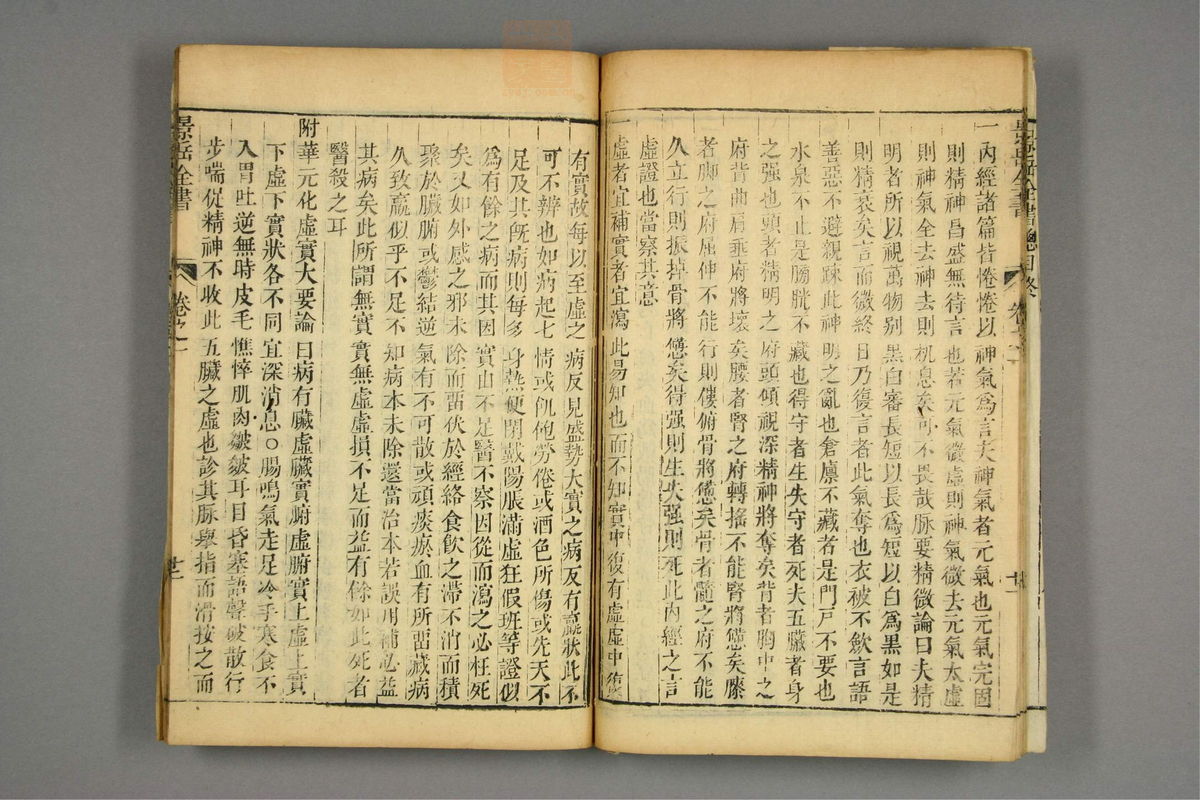 一內經諸篇皆惓惓以神氣爲言夫神氣者元氣也元氣完固
則精神昌盛無待言也若元氣微虛則神氣微去元氣太虛
則神氣全去神去則机息矣可不畏哉脉要精微論曰夫精
明者所以視萬物别黑白審長短以長爲短以白爲黑如是
則精衰矣言而微終日乃復言者此氣奪也衣被不歛言語
善惡不避親踈此神明之亂也倉廪不藏者是門戸不要也
水泉不止是膀胱不藏也得守者生失守者死夫五臟者身
之强也頭者精明之府頭傾視深精神將奪矣背者胸中之
府背曲肩垂府將壞矣腰者腎之府轉搖不能腎將憊矣膝
者脚之府屈伸不能行則僂俯骨將憊矣骨者髓之府不能
久立行則振掉骨將憊矣得强則生失强則死此內經之言
虛證也當察其意
虛者宜補實者宜瀉此易知也而不知實中復有虛虛中復
有實故每以至虛之病反見盛勢大實之病反有羸狀此不
可不辨也如病起七情或飢飽勞倦或酒色所傷或先天不
足及其旣病則每多身熱便閉戴陽脹滿虛狂假斑等證似
爲有餘之病而其因實由不足醫不察因從而瀉之必枉死
矣又如外感之邪未除而畱伏於經絡食飮之滯不消而積
聚於臟腑或鬱結逆氣有不可散或頑痰瘀血有所畱藏病
久致羸似乎不足不知病本未除還當治本若誤用補必益
其病矣此所謂無實實無虛虛損不足而益有餘如此死者
醫殺之耳
附華元化虛實大要論曰病有臟虛臟實腑虛腑實上虛上實
下虛下實狀各不同宜深消息○腸鳴氣走足冷手寒食不
入胃吐逆無時皮毛憔悴肌肉皺皺耳目昏塞語聲破散行
步喘促精神不收此五臟之虛也診其脉舉指而滑按之而
景岳全書
卷之一